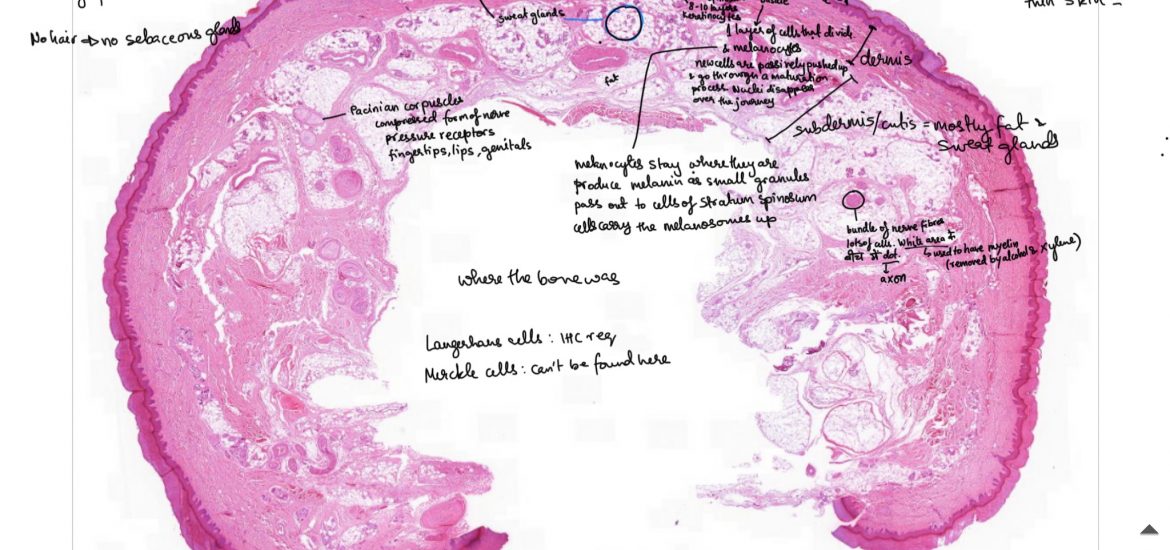 thin skin =
sweat glands
8-10 layers
keratinocytes
basale
1 layer of cells that divide
& melanocytes
new cells are passively pushed up
& go through a maturation
process. Nuclei disappear
over the journey
No hair → no sebaceous glands
dermis
fat
Pacinian corpuscles
compressed form of nerve
pressure receptors
fingertips, lips, genitals
subdermis/cutis = mostly fat &
sweat glands
melanocytes stay where they are
produce melanin as small granules
pass out to cells of Stratum spinosum
cells carry the melanosomes up
bundle of nerve fibres
lots of cells. White area
↳ used to have myelin
(removed by alcohol & xylene)
axon
where the bone was
Langerhans cells : IHC req
Merckle cells : can't be found here